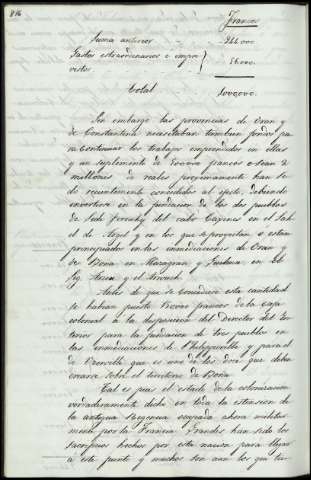 816
Francos
Suma anterior 944.000.
Gastos estraordinarios é impre
vistos 56.000.
Total 1.000.000.
Sin embargo las provincias de Oran y
de Constantina necesitaban tambien fondos pa
ra continuar los trabajos emprendidos en ellas
y un suplemento de francos ó sean 2
millones de reales proximamente han si
do recientemente concedidos al efecto, debiendo
invertirse en la fundacion de los dos pueblos
de Sidi Ferruchy del cabo Caxines en el Sah
el de Argel y en los que se proyectan ó estan
principiados en las inmediaciones de Oran y
de Bona en Mazagran y
y el Arrouch.
Antes de que se concediera esta cantidad
se habian puesto francos de la caja
colonial á la disposicion del Director del in
terior para la fundacion de tres pueblos en
las inmediaciones de Philippeville y para el
de que es uno de los doce que deben
crearse sobre el territorio de Bona
Tal es pues el estado de la colonizacion
verdaderamente dicha en toda la estension de
la antigua Regencia ocupada ahora militar
mente por la Francia. Grandes han sido los
sacrificios hechos por esta nacion para llegar
á este punto y muchos son aun los que tie